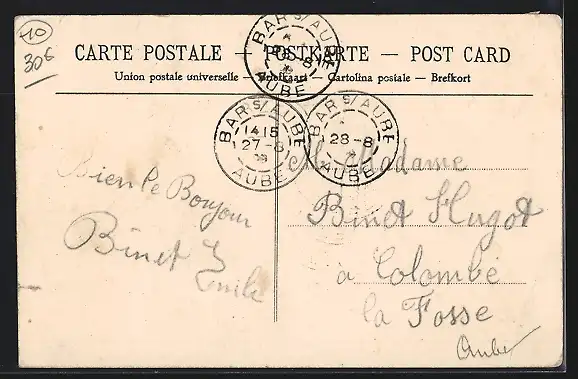 10
30€
CARTE POSTALE — POSTKARTE — POST CARD
Union postale universelle — Briefkaart — Cartolina postale — Brefkort
BAR S/AUBE
28-8
AUBE
BAR S/AUBE
1415
27-8
AUBE
BAR S/AUBE
28-8
AUBE
Bien le Bonjour
Binet
Emile
Madame
Binet Hugot
à Colombé
la Fosse
Aube